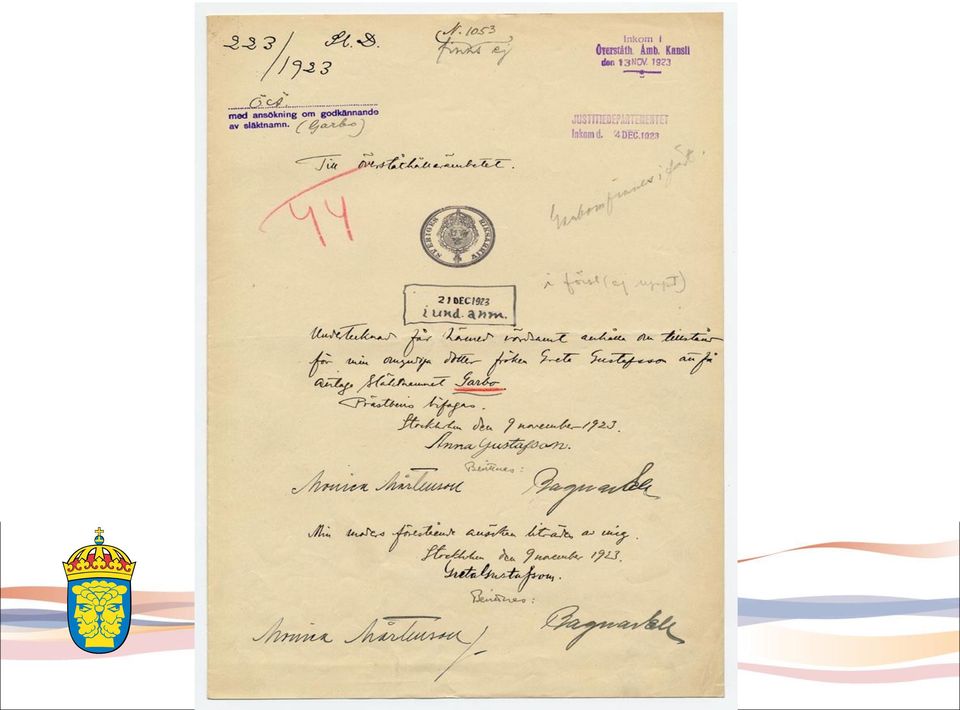 223/1923 St. D.
N. 1053
finns ej
Inkom i
Överståth. Ämb. Kansli
den 13 NOV. 1923
ÖÄ.
med ansökning om godkännande
av släktnamn. (Garbo)
JUSTITIEDEPARTEMENTET
Inkom d. 4 DEC. 1923
Till överståthållarämbetet.
44
SVERIGES RIKSARKIV
i först (ej uppt)
21 DEC 1923
i und. anm.
Undertecknad får härmed vördsamt anhålla om tillstånd
för min omyndiga dotter fröken Greta Gustafsson att få
antaga släktnamnet Garbo.
Prästbevis bifogas.
Stockholm den 9 november 1923.
Anna Gustafsson.
Bevittnes:
Monica Mårtenson
Min moders förestående ansökan biträdes av mig.
Stockholm den 9 november 1923.
Greta Gustafsson.
Bevittnes:
Monica Mårtenson